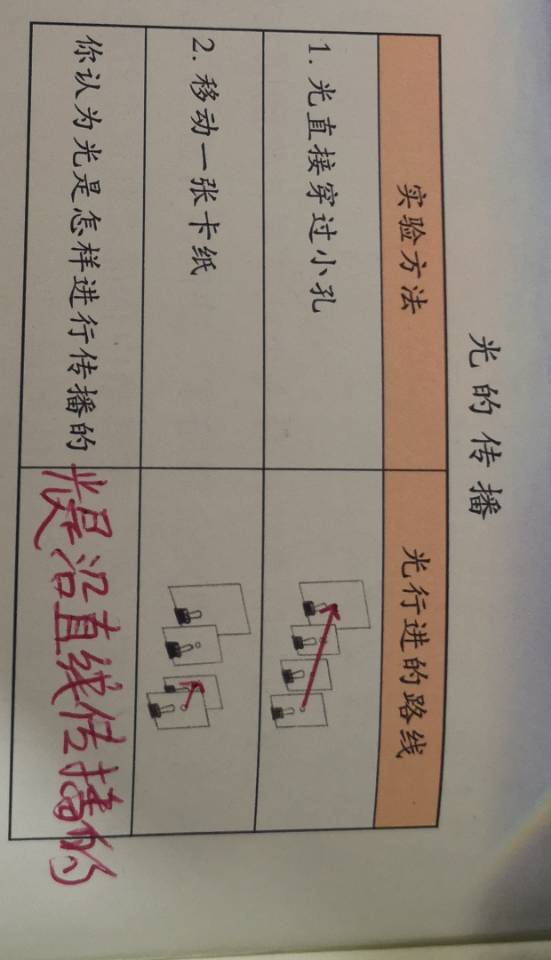 光的传播
实验方法
光行进的路线
1. 光直接穿过小孔
2. 移动一张卡纸
你认为光是怎样进行传播的
光是沿直线传播的